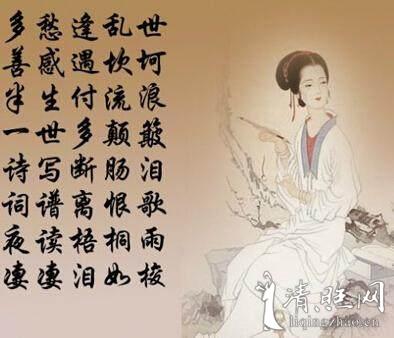 多愁逢乱世
善感遇坎坷
半生付流浪
一世多颠簸
诗写断肠泪
词谱离恨歌
夜读梧桐雨
凄凄泪如梭
清网
liqingzhao.cn